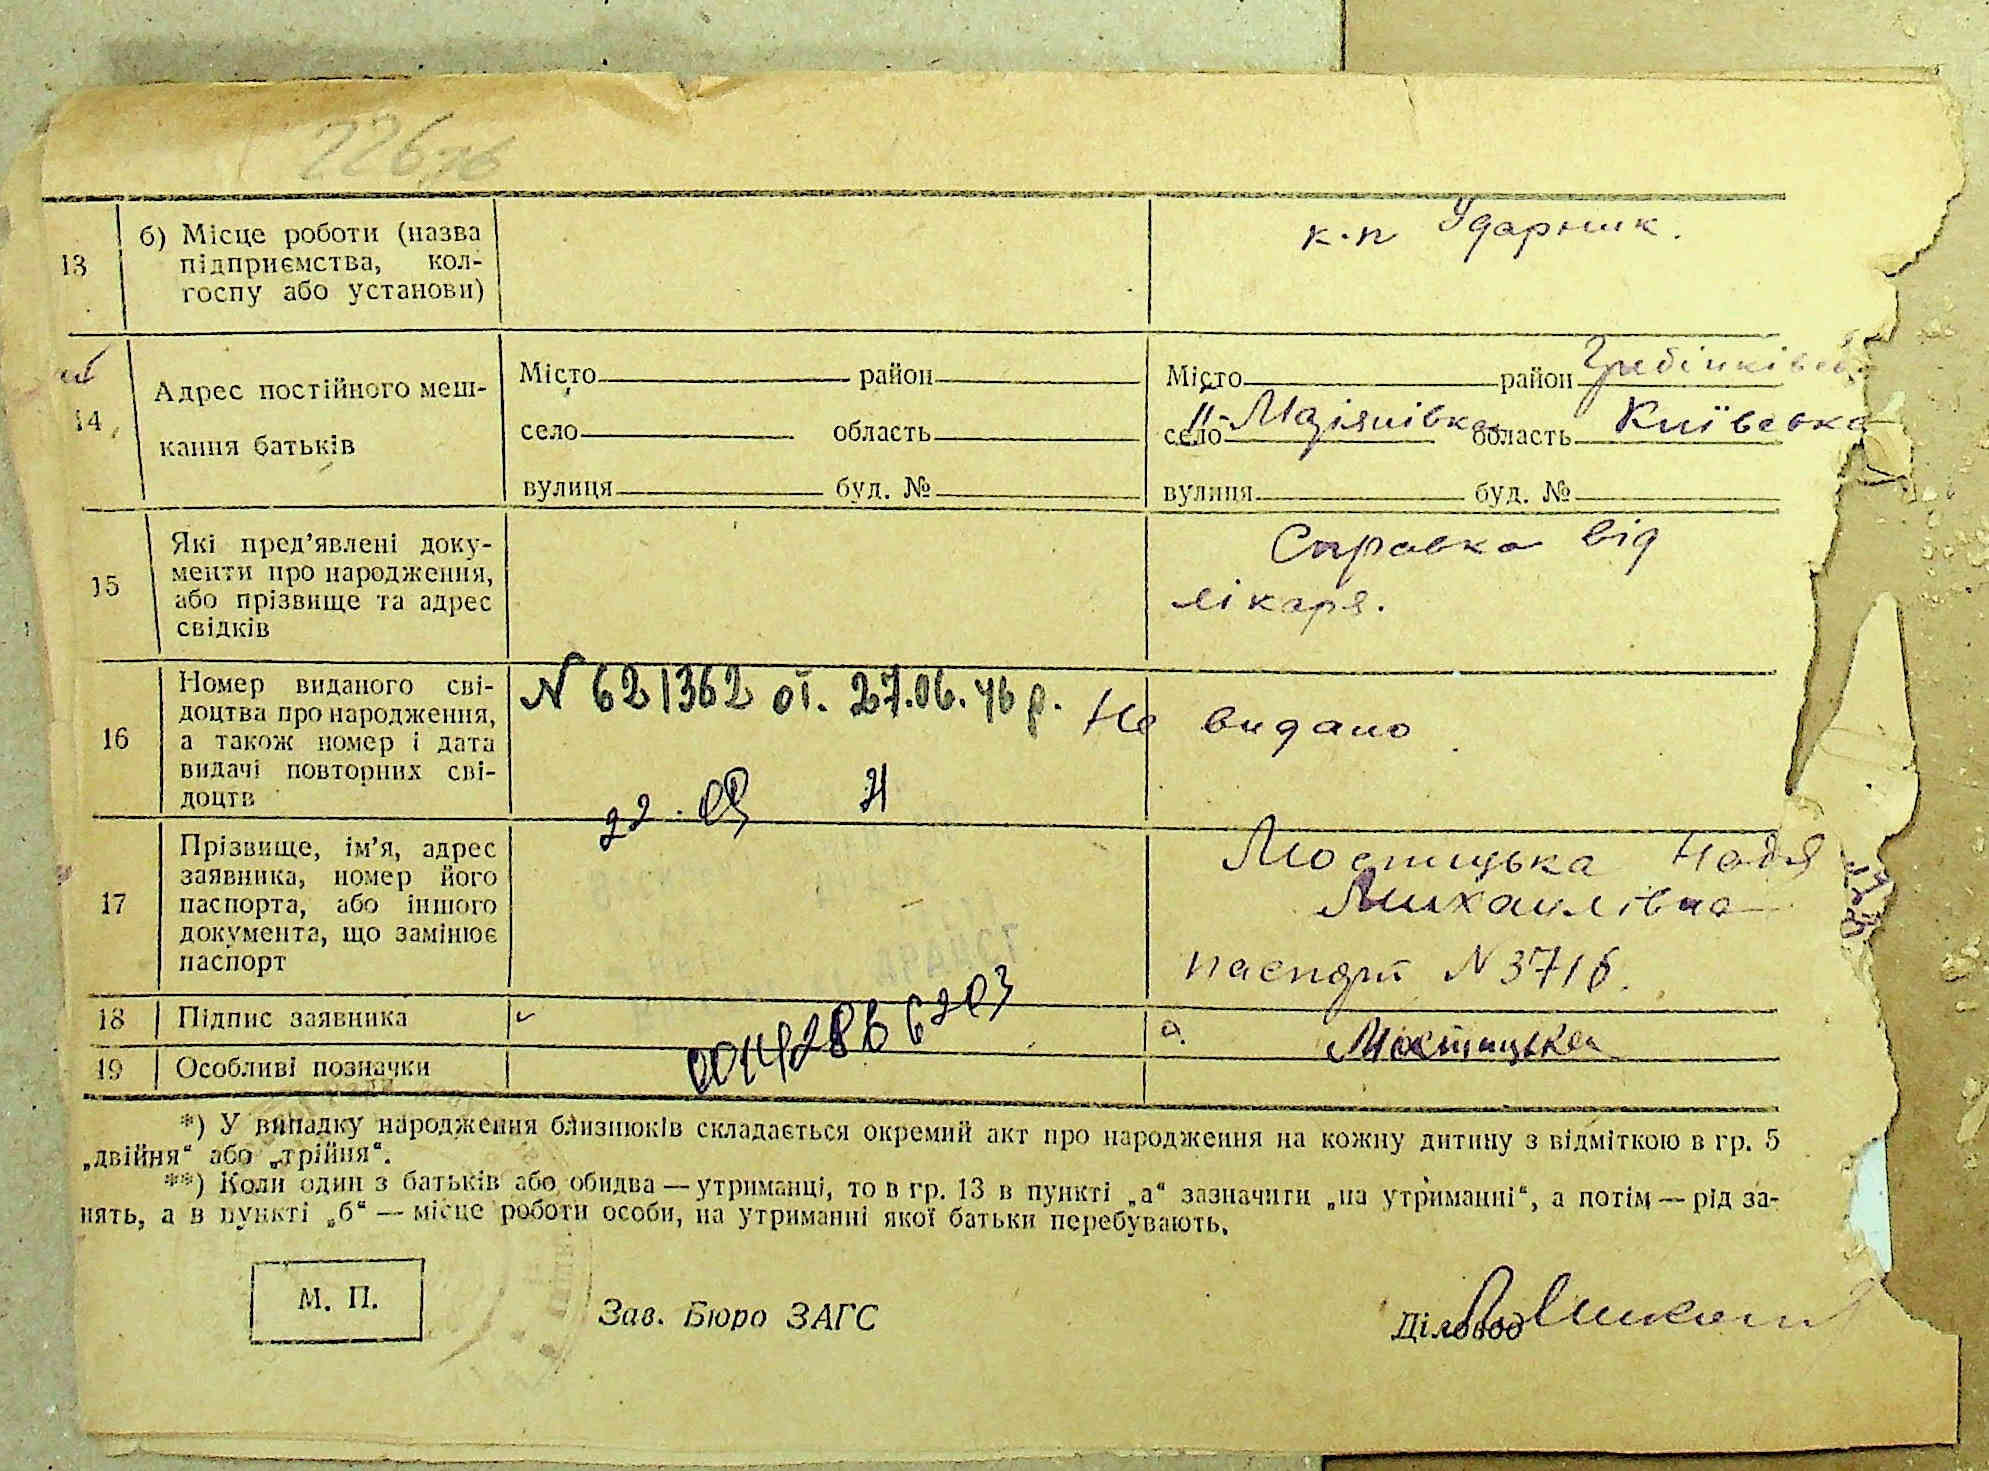 226 зв
13
б) Місце роботи (назва
підприємства, кол-
госпу або установи)
к-п Ударник.
14
Адрес постійного меш-
кання батьків
Місто район
село область
вулиця буд. №
Місто район Гребінківськ
село область Київська
вулиця буд. №
15
Які пред’явлені доку-
менти про народження,
або прізвище та адрес
свідків
Справка від
лікаря.
16
Номер виданого сві-
доцтва про народження,
а також номер і дата
видачі повторних сві-
доцтв
N 621362 от. 27.06.46 р.
Не видано
22.09
17
Прізвище, ім’я, адрес
заявника, номер його
паспорта, або іншого
документа, що замінює
паспорт
Мостицька Надя
Михайлівна
паспорт N 3716.
18
Підпис заявника
Мостицька
19
Особливі позначки
*) У випадку народження близнюків складається окремий акт про народження на кожну дитину з відміткою в гр. 5
„двійня“ або „трійня“.
**) Коли один з батьків або обидва — утриманці, то в гр. 13 в пункті „а“ зазначити „на утриманні“, а потім — рід за-
нять, а в пункті „б“ — місце роботи особи, на утриманні якої батьки перебувають.
М. П.
Зав. Бюро ЗАГС
Діловод